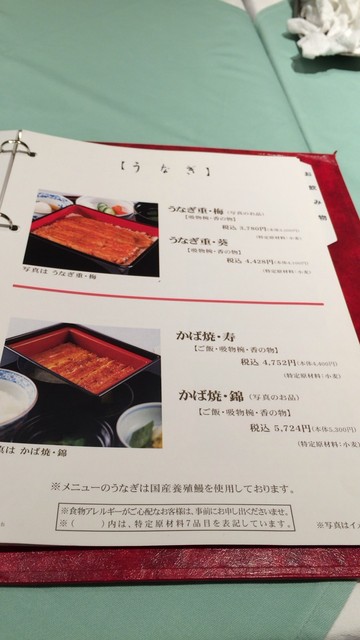 【うなぎ】
お飲み物
うなぎ重・梅（写真のお品）
【吸物椀・香の物】
税込 3,780円(本体3,500円)
（特定原材料：小麦）
うなぎ重・葵
【吸物椀・香の物】
税込 4,428円(本体4,100円)
（特定原材料：小麦）
写真は うなぎ重・梅
かば焼・寿
【ご飯・吸物椀・香の物】
税込 4,752円(本体4,400円)
（特定原材料：小麦）
かば焼・錦（写真のお品）
【ご飯・吸物椀・香の物】
税込 5,724円(本体5,300円)
（特定原材料：小麦）
真は かば焼・錦
※メニューのうなぎは国産養殖鰻を使用しております。
※食物アレルギーがご心配なお客様は、事前にお申し出くださいませ。
※（　）内は、特定原材料7品目を表記しています。
※写真はイメ